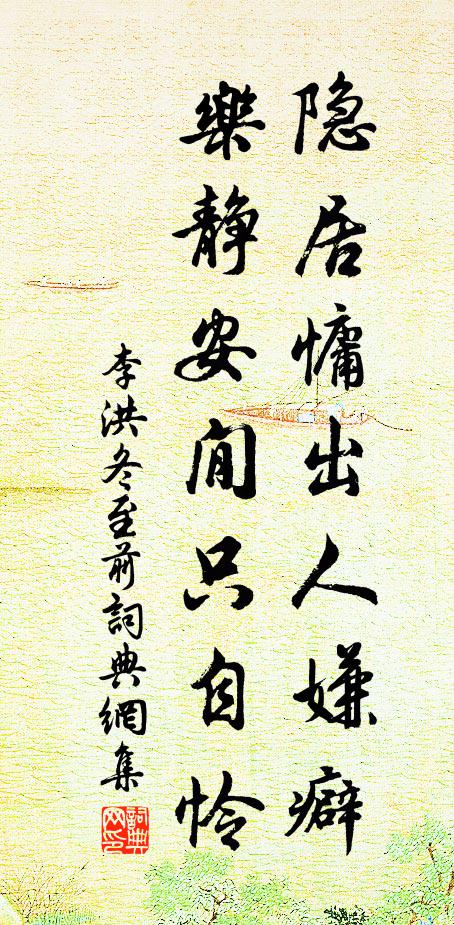 隐居慵出人嫌癖
樂静安閒只自怜
李洪冬至前詞典網集
詞典网印